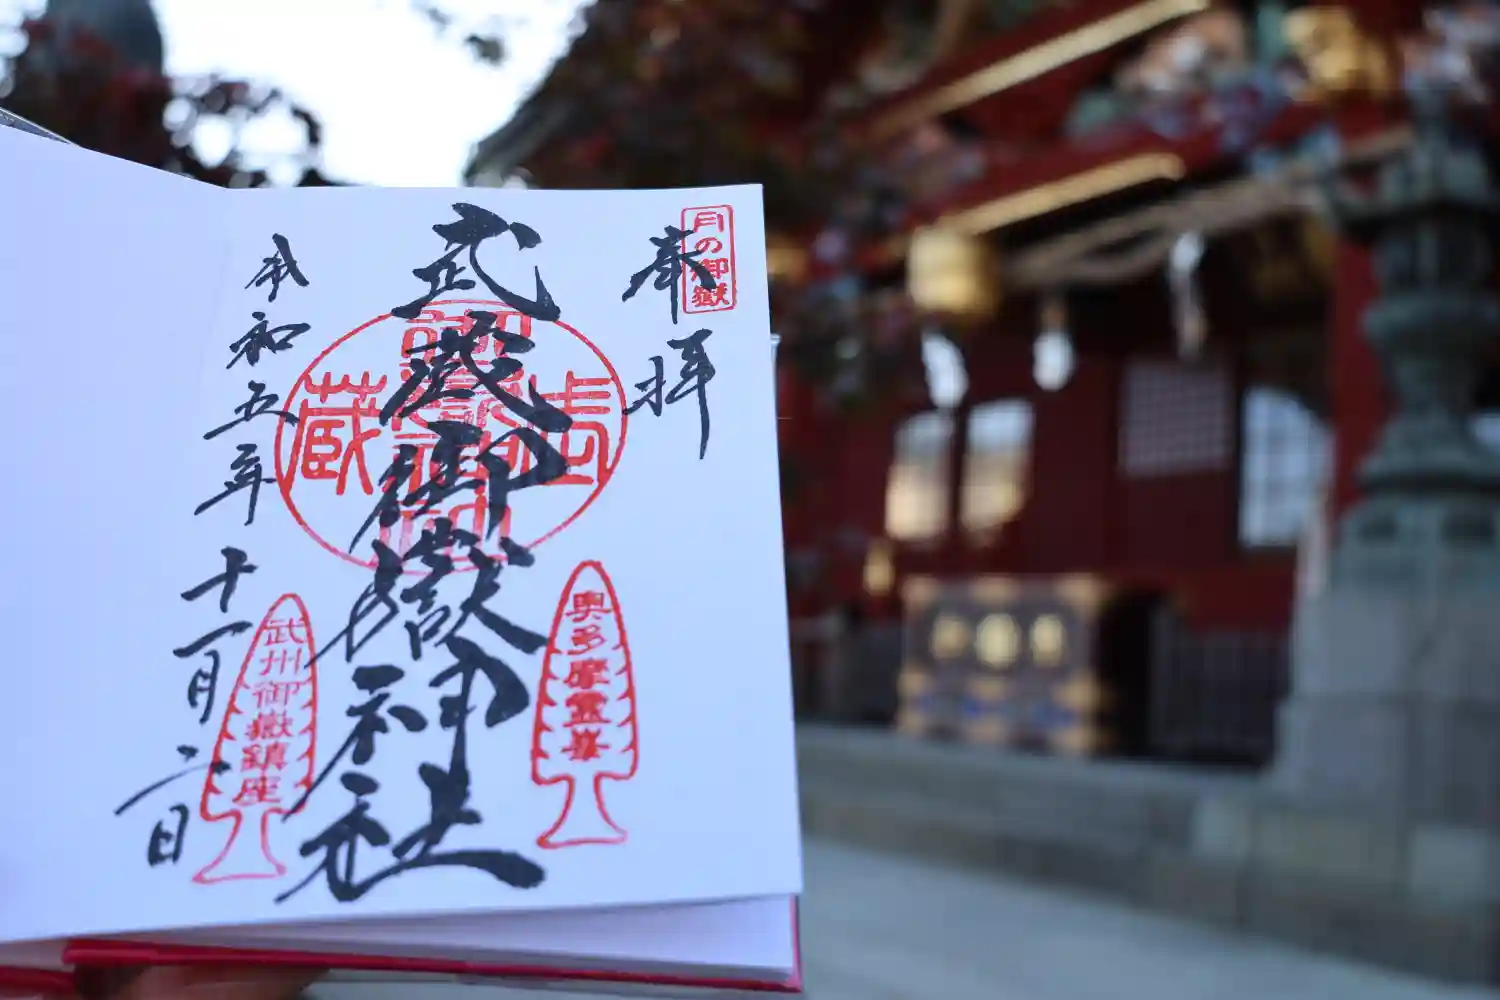 月の御嶽
奉拝
武蔵御嶽神社
武蔵
奥多摩霊峯
武州御嶽鎮座
令和五年十一月二日